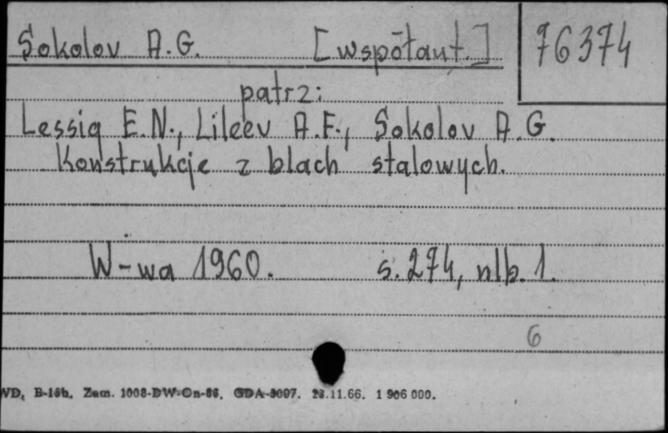 Sokolov A.G. [współaut.] 76374
patrz:
Lessig E.N., Lileev A.F., Sokolov A.G.
Konstrukcje z blach stalowych.
W-wa 1960. s. 274, nlb. 1.
6
WD, B-15b. Zam. 1008-DW-On-66. GDA-3097. 23.11.66. 1 906 000.